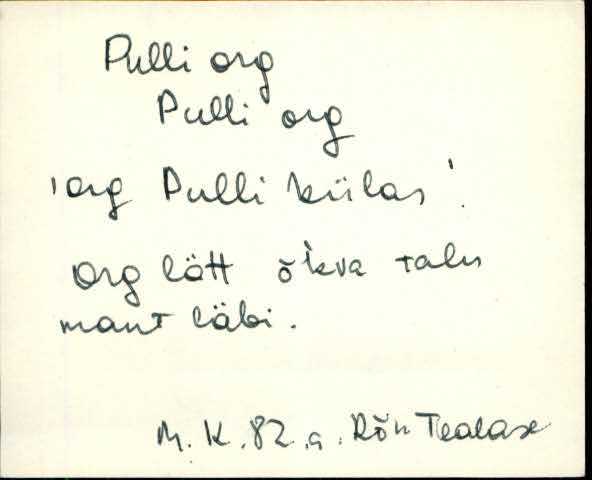 Pulli org
Pulli org
'org Pulli külas'.
Org lätt õ̀kva talu
mant läbi.
M. K. 82. a. Rõn Tealase